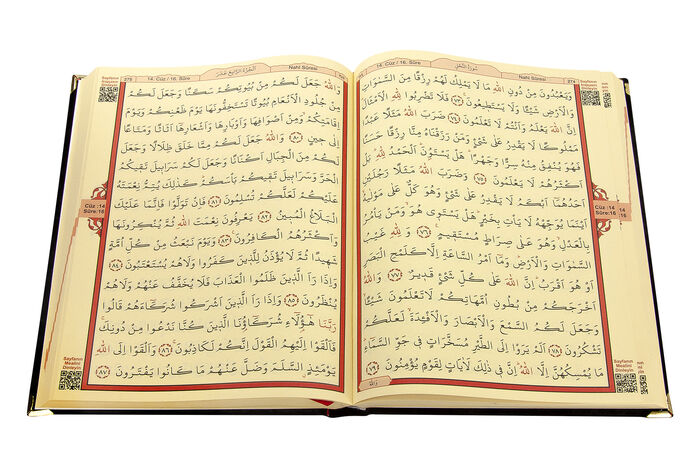 274
Nahl Sûresi
سورة النحل
14. Cüz / 16. Sûre
وَيَعْبُدُونَ مِنْ دُونِ اللّٰهِ مَا لَا يَمْلِكُ لَهُمْ رِزْقًا مِنَ السَّمٰوَاتِ
وَالْاَرْضِ شَيْـًٔا وَلَا يَسْتَطِيعُونَ ﴿٧٣﴾ فَلَا تَضْرِبُوا لِلّٰهِ الْاَمْثَالَ
اِنَّ اللّٰهَ يَعْلَمُ وَاَنْتُمْ لَا تَعْلَمُونَ ﴿٧٤﴾ ضَرَبَ اللّٰهُ مَثَلًا عَبْدًا
مَمْلُوكًا لَا يَقْدِرُ عَلٰى شَيْءٍ وَمَنْ رَزَقْنَاهُ مِنَّا رِزْقًا حَسَنًا
فَهُوَ يُنْفِقُ مِنْهُ سِرًّا وَجَهْرًا هَلْ يَسْتَوُ۫نَ الْحَمْدُ لِلّٰهِ بَلْ
اَكْثَرُهُمْ لَا يَعْلَمُونَ ﴿٧٥﴾ وَضَرَبَ اللّٰهُ مَثَلًا رَجُلَيْنِ
اَحَدُهُمَا اَبْكَمُ لَا يَقْدِرُ عَلٰى شَيْءٍ وَهُوَ كَلٌّ عَلٰى مَوْلٰيهُ
اَيْنَمَا يُوَجِّهْهُ لَا يَأْتِ بِخَيْرٍ هَلْ يَسْتَوِي هُوَ وَمَنْ يَأْمُرُ
بِالْعَدْلِ وَهُوَ عَلٰى صِرَاطٍ مُسْتَقِيمٍ ﴿٧٦﴾ وَلِلّٰهِ غَيْبُ
السَّمٰوَاتِ وَالْاَرْضِ وَمَا اَمْرُ السَّاعَةِ اِلَّا كَلَمْحِ الْبَصَرِ
اَوْ هُوَ اَقْرَبُ اِنَّ اللّٰهَ عَلٰى كُلِّ شَيْءٍ قَدِيرٌ ﴿٧٧﴾ وَاللّٰهُ
اَخْرَجَكُمْ مِنْ بُطُونِ اُمَّهَاتِكُمْ لَا تَعْلَمُونَ شَيْـًٔا
وَجَعَلَ لَكُمُ السَّمْعَ وَالْاَبْصَارَ وَالْاَفْـِٔدَةَ لَعَلَّكُمْ
تَشْكُرُونَ ﴿٧٨﴾ اَلَمْ يَرَوْا اِلَى الطَّيْرِ مُسَخَّرَاتٍ فِي جَوِّ السَّمَاءِ
مَا يُمْسِكُهُنَّ اِلَّا اللّٰهُ اِنَّ فِي ذٰلِكَ لَاٰيَاتٍ لِقَوْمٍ يُؤْمِنُونَ ﴿٧٩﴾
وَاللّٰهُ
Cüz :14
Sûre:16
Sayfanın
Mealini
Dinleyin
275
14. Cüz / 16. Sûre
الجزء الرابع عشر
Nahl Sûresi
وَاللّٰهُ جَعَلَ لَكُمْ مِنْ بُيُوتِكُمْ سَكَنًا وَجَعَلَ لَكُمْ
مِنْ جُلُودِ الْاَنْعَامِ بُيُوتًا تَسْتَخِفُّونَهَا يَوْمَ ظَعْنِكُمْ وَيَوْمَ
اِقَامَتِكُمْ وَمِنْ اَصْوَافِهَا وَاَوْبَارِهَا وَاَشْعَارِهَا اَثَاثًا وَمَتَاعًا
اِلٰى حِينٍ ﴿٨٠﴾ وَاللّٰهُ جَعَلَ لَكُمْ مِمَّا خَلَقَ ظِلَالًا وَجَعَلَ
لَكُمْ مِنَ الْجِبَالِ اَكْنَانًا وَجَعَلَ لَكُمْ سَرَابِيلَ تَقِيكُمُ
الْحَرَّ وَسَرَابِيلَ تَقِيكُمْ بَأْسَكُمْ كَذٰلِكَ يُتِمُّ نِعْمَتَهُ
عَلَيْكُمْ لَعَلَّكُمْ تُسْلِمُونَ ﴿٨١﴾ فَاِنْ تَوَلَّوْا فَاِنَّمَا عَلَيْكَ
الْبَلَاغُ الْمُبِينُ ﴿٨٢﴾ يَعْرِفُونَ نِعْمَتَ اللّٰهِ ثُمَّ يُنْكِرُونَهَا
وَاَكْثَرُهُمُ الْكَافِرُونَ ﴿٨٣﴾ وَيَوْمَ نَبْعَثُ مِنْ كُلِّ اُمَّةٍ
شَهِيدًا ثُمَّ لَا يُؤْذَنُ لِلَّذِينَ كَفَرُوا وَلَا هُمْ يُسْتَعْتَبُونَ ﴿٨٤﴾
وَاِذَا رَاَ الَّذِينَ ظَلَمُوا الْعَذَابَ فَلَا يُخَفَّفُ عَنْهُمْ وَلَا هُمْ
يُنْظَرُونَ ﴿٨٥﴾ وَاِذَا رَاَ الَّذِينَ اَشْرَكُوا شُرَكَاءَهُمْ قَالُوا
رَبَّنَا هٰؤُلَاءِ شُرَكَاؤُنَا الَّذِينَ كُنَّا نَدْعُوا مِنْ دُونِكَ
فَاَلْقَوْا اِلَيْهِمُ الْقَوْلَ اِنَّكُمْ لَكَاذِبُونَ ﴿٨٦﴾ وَاَلْقَوْا اِلَى اللّٰهِ
يَوْمَئِذٍ السَّلَمَ وَضَلَّ عَنْهُمْ مَا كَانُوا يَفْتَرُونَ ﴿٨٧﴾
Cüz :14
Sûre:16
Sayfanın
Mealini
Dinleyin